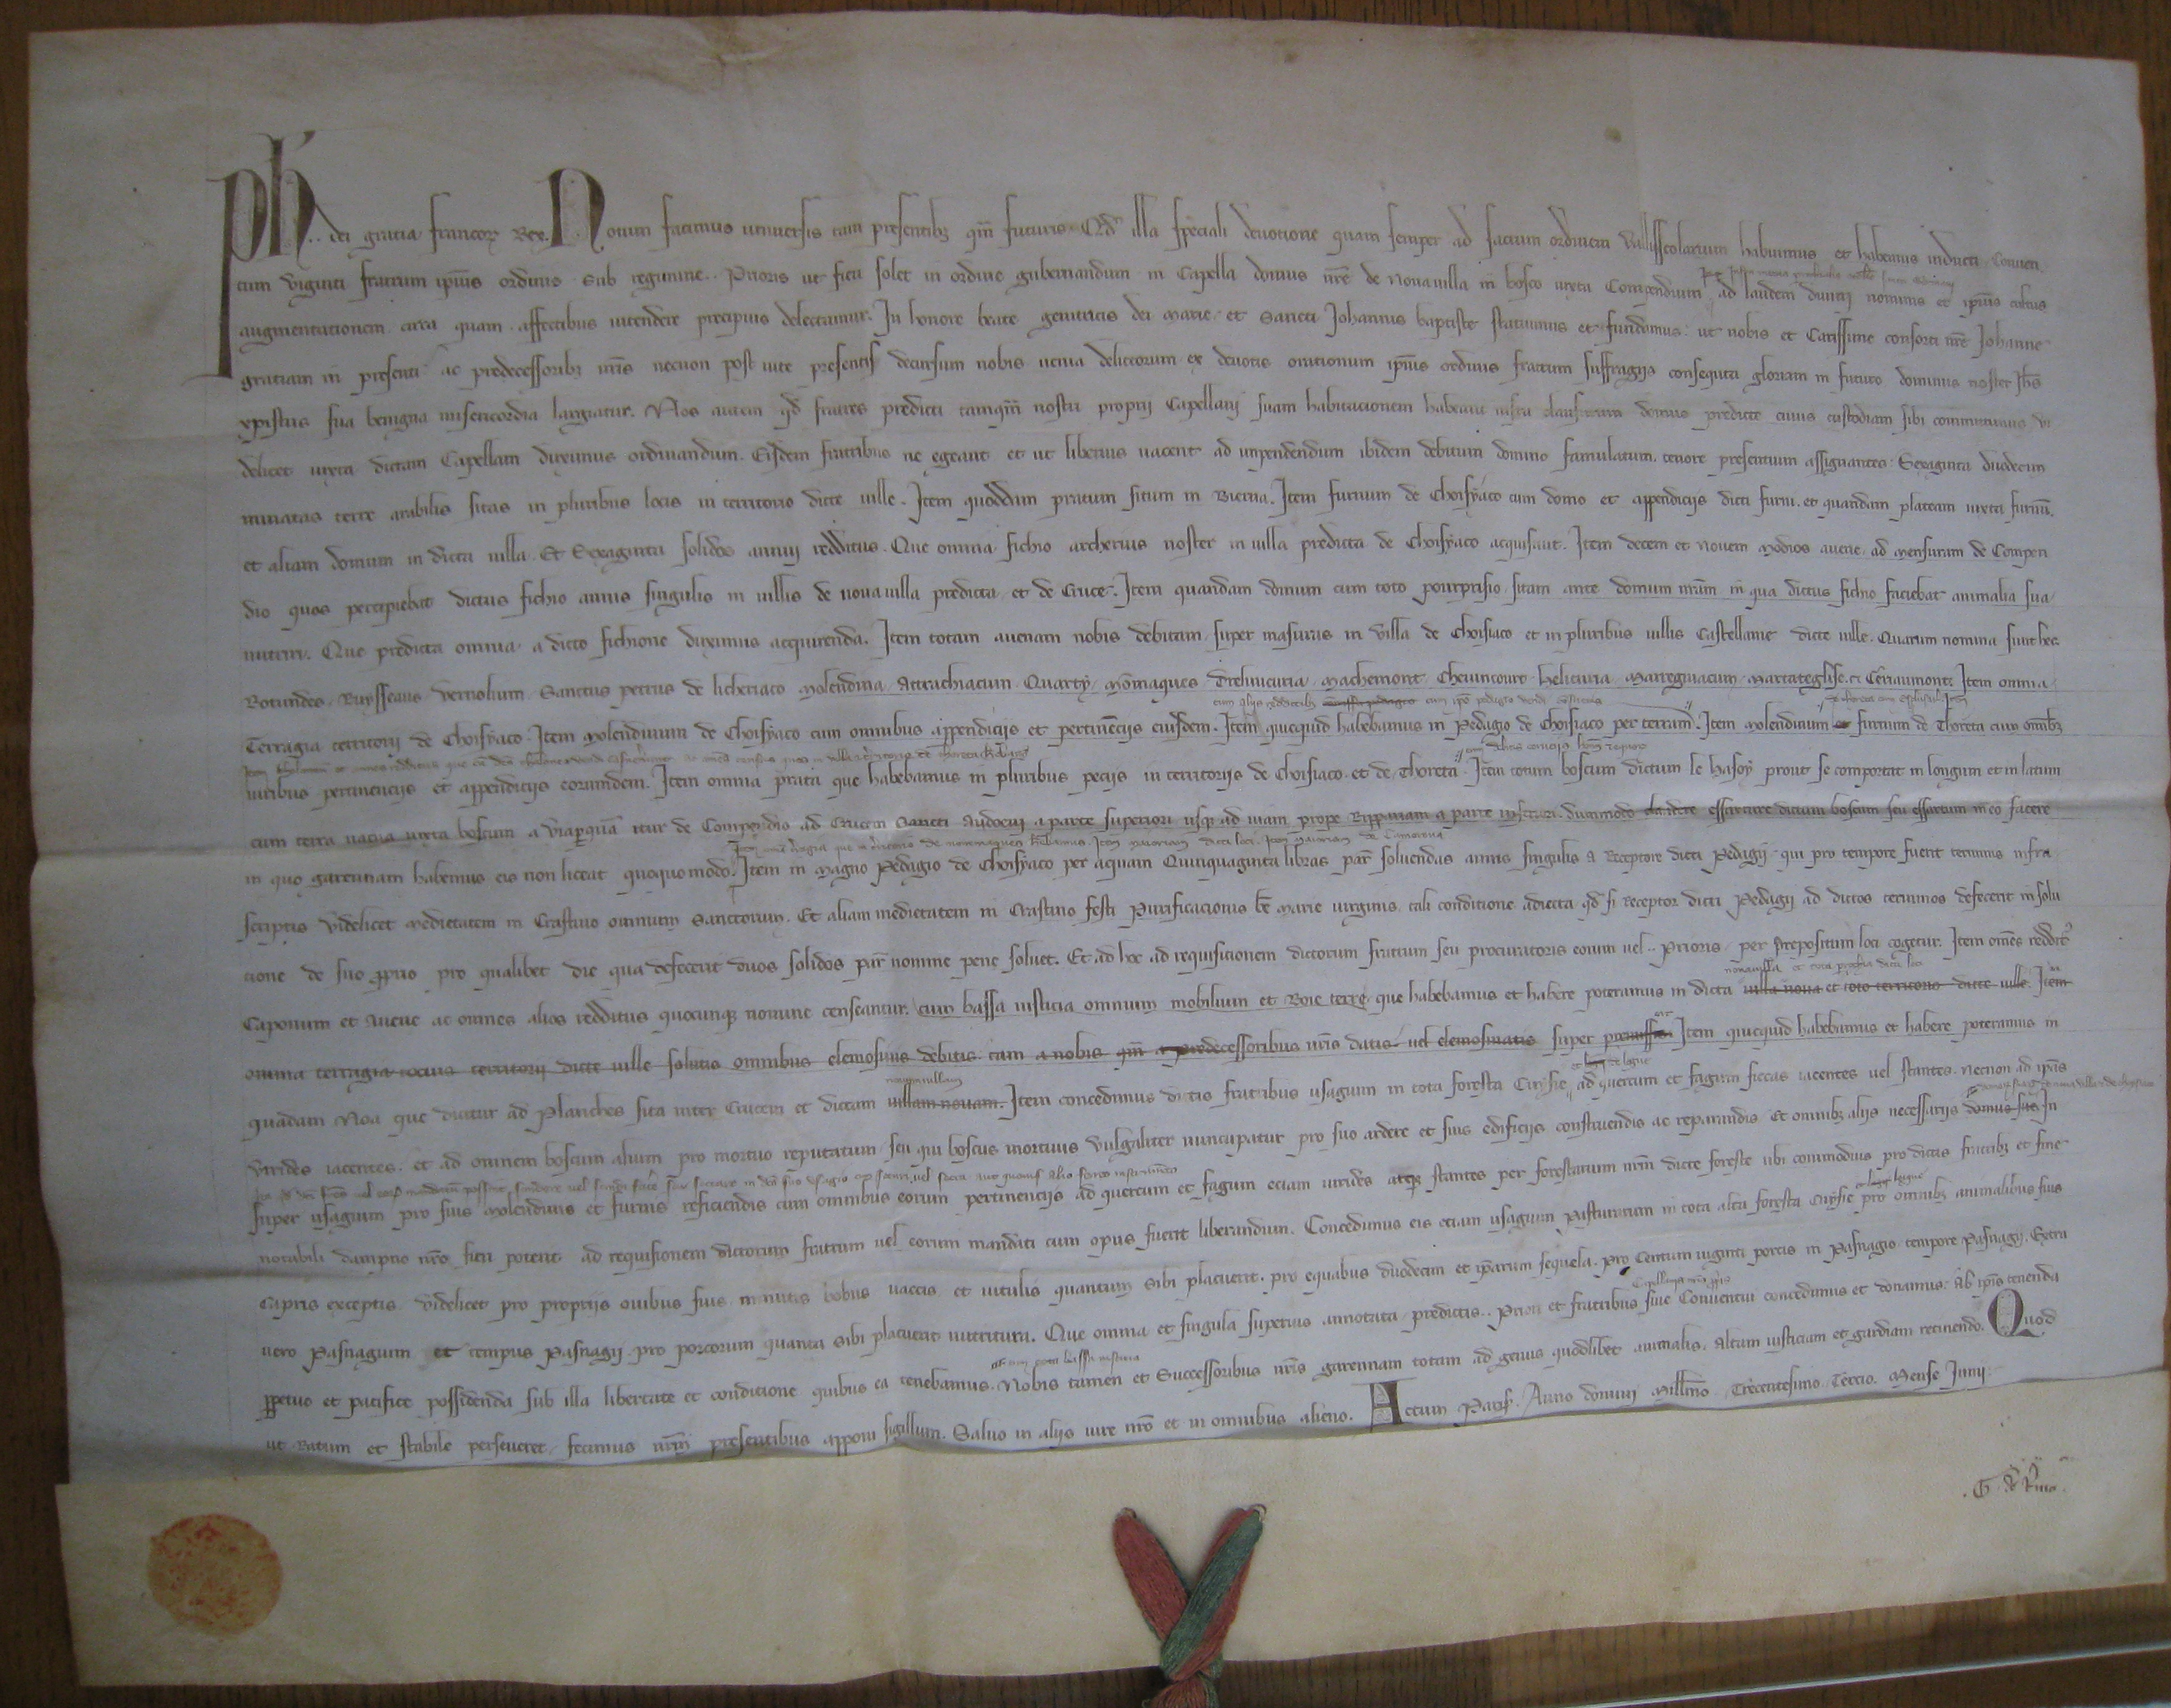 Ph. dei gratia francorꝝ Rex. Notum facimus universis tam presentibꝫ qm̄ futuris Qd̄ illa speciali devotione quam semper ad sacrum ordinem Vallisscolarium habuimus et habemus inducti Conven
tum viginti fratrum ipīus ordinis sub regimine .. Prioris ut fieri solet in ordine gubernandum in Capella domus nr̄e de Novavilla in bosco iuxta Compendium ad laudem divini nominis et ipīus cultus
augmentationem circa quam affectibus intendere precipuis delectamur. In honore beate genitricis dei Marie et Sancti Johannis baptiste statuimus et fundamus: ut nobis et Carissime consorti nr̄e Johanne
gratiam in presenti ac predecessoribꝫ nr̄is necnon post vite presentis decursum nobis venia delictorum ex devotis orationum ipīus ordinis fratrum suffragijs consequta gloriam in futuro dominus noster Jhs̄
xpistus sua benigna misericordia largiatur. Nos autem qd̄ fratres predicti tamqm̄ nostri proprij Capellani suam habitacionem habeant infra clausuram domus predicte cuius custodiam sibi committimus vi
delicet iuxta dictam Capellam duximus ordinandum. Eisdem fratribus ne egeant et ut liberius vacent ad impendendum ibidem debitum domino famulatum, tenore presentium assignantes Sexaginta duodecim
minatas terre arabilis sitas in pluribus locis in territorio dicte ville. Item quoddam pratum situm in Bierna. Item furnum de Choisyaco cum domo et appendicijs dicti furni, et quandam plateam iuxta furnū.
et aliam domum in dicta villa. Et Sexaginta solidos annui redditus. Que omnia fichio archerius noster in villa predicta de Choisyaco acquisivit. Item decem et novem modios avene ad mensuram de Compen
dio quos percipiebat dictus fichio annis singulis in villis de novavilla predicta et de Cruce. Item quandam domum cum toto pourprisio sitam ante domum nr̄am in qua dictus fichio faciebat animalia sua
nutriri. Que predicta omnia a dicto fichione duximus acquirenda. Item totam avenam nobis debitam super masuris in villa de Choisiaco et in pluribus villis Castellanie dicte ville. Quarum nomina sunt hec
Rotundes. Ruysseaus Vernolium. Sanctus petrus de licheriaco Molendina Attrachiacum. Quarty. Mōmaques Drelincuria Machemont Chevincourt Helicuria Marregniacum Marcateglise et Ceriaumont. Item omnia
cum alijs redditibꝫ cum ipō pedagio
Terragia territorij de Choisyaco. Item Molendinum de Choisyaco cum omnibus appendicijs et pertinēcijs eiusdem. Item quicquid habebamus in Pedagio de Choisiaco per terram. Item Molendinum et furnum de Thoreta cum omībꝫ
iuribus pertinencijs et appendicijs eorumdem. Item omnia prata que habebamus in pluribus pecijs in territorijs de Choisiaco et de Thoreta. Item totum boscum dictum le hasoy prout se comportat in longum et in latum
cum terra vacua iuxta boscum a via per quā itur de Compendio ad Crucem Sancti Audoeni a parte superiori usqꝫ ad viam prope Rippariam a parte inferiori. dummodo claudere essartare dictum boscum seu essartum in eo facere
Item oīa que in territorio de momaques habebamus. Item maioriam dicti loci. Item maioriam de
in quo garennam habemus eis non liceat quoquomodo. Item in magno Pedagio de Choisyaco per aquam Quinquaginta libras par̄ solvendas annis singulis a Receptore dicti Pedagij qui pro tempore fuerit terminis infra
scriptis videlicet medietatem in Crastino omnium Sanctorum. Et aliam medietatem in Crastino festi Purificacionis be Marie virginis. tali conditione adiecta qd̄ si Receptor dicti Pedagij ad dictos terminos defecerit in solu
cione de suo ꝓprio pro qualibet die qua defecerit duos solidos par̄ nomine pene solvet. Et ad hoc ad requisitionem dictorum fratrum seu procuratoris eorum vel .. Prioris per Prepositum loci cogetur. Item om̄es reddit
novavilla et tota parochia dicti loci
Caponum et Avene ac omnes alios redditus quocunqꝫ nomine censeantur. cum bassa iusticia omnium mobilium et Roie terre que habebamus et habere poteramus in dicta villa nova et toto territorio dicte ville. Item
omnia terragia tocius territorij dicte ville solutis omnibus elemosinis debitis tam a nobis qm̄ a predecessoribus nr̄is datis vel elemosinatis super premissis. Item quicquid habebamus et habere poteramus in
novamvillam
quadam Noa que dicitur ad Planches sita inter Crucem et dictam villam novam. Item concedimus dictis fratribus usagium in tota foresta Cuysie ad quercum et fagum siccas iacentes vel stantes. necnon ad ipās
virides iacentes. et ad omnem boscum alium pro mortuo reputatum seu qui boscus mortuus vulgaliter nuncupatur pro suo ardere et suis edificijs construendis ac reparandis Et omnibꝫ alijs necessarijs domus sue. In
super usagium pro suis molendinis et furnis reficiendis cum omnibus eorum pertinencijs ad quercum et fagum eciam virides atqꝫ stantes per forestarium nr̄m dicte foreste ubi commodius pro dictis fratribꝫ et sine
notabili dampno nr̄o fieri poterit ad requisitionem dictorum fratrum vel eorum mandati cum opus fuerit liberandum. Concedimus eis eciam usagium Pasturarum in tota alta foresta Cuysie pro omnibꝫ animalibus suis
Capris exceptis videlicet pro proprijs ovibus suis, nutritis bobus vaccis et vitulis quantum sibi placuerit. pro equabus duodecim et ip̄arum sequela. pro Centum viginti porcis in Pasnagio tempore Pasnagij. Extra
vero Pasnagium et tempus Pasnagij pro porcorum quanta sibi placuerit nutritura. Que omnia et singula superius annotata predictis .. Priori et fratribus sive Conventui concedimus et donamus. Ab ipīs tenenda
ꝑpetuo et pacifice possidenda sub illa libertate et conditione quibus ea tenebamus. Nobis tamen et Successoribus nr̄is garennam totam ad genus quodlibet animalis, altam iusticiam et gardiam retinendo. Quod
ut Ratum et stabile perseveret fecimus nr̄m presentibus apponi sigillum. Salvo in alijs iure nr̄o et in omnibus alieno. Actum Paris. Anno domini Millīmo Trecentesimo Tercio. Mense Junij.